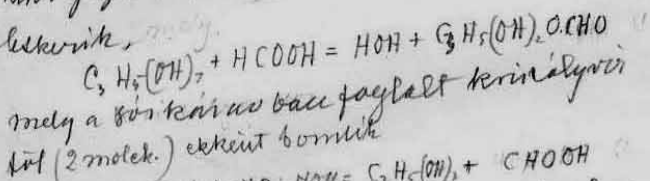 C₃ H₅(OH)₃ + HCOOH = HOH + C₃ H₅(OH)₂ O.CHO
mely a sóskásavban foglalt kristályvíz
től (2 molek.) ekként bomlik
C₃ H₅(OH)₃ + CHOOH